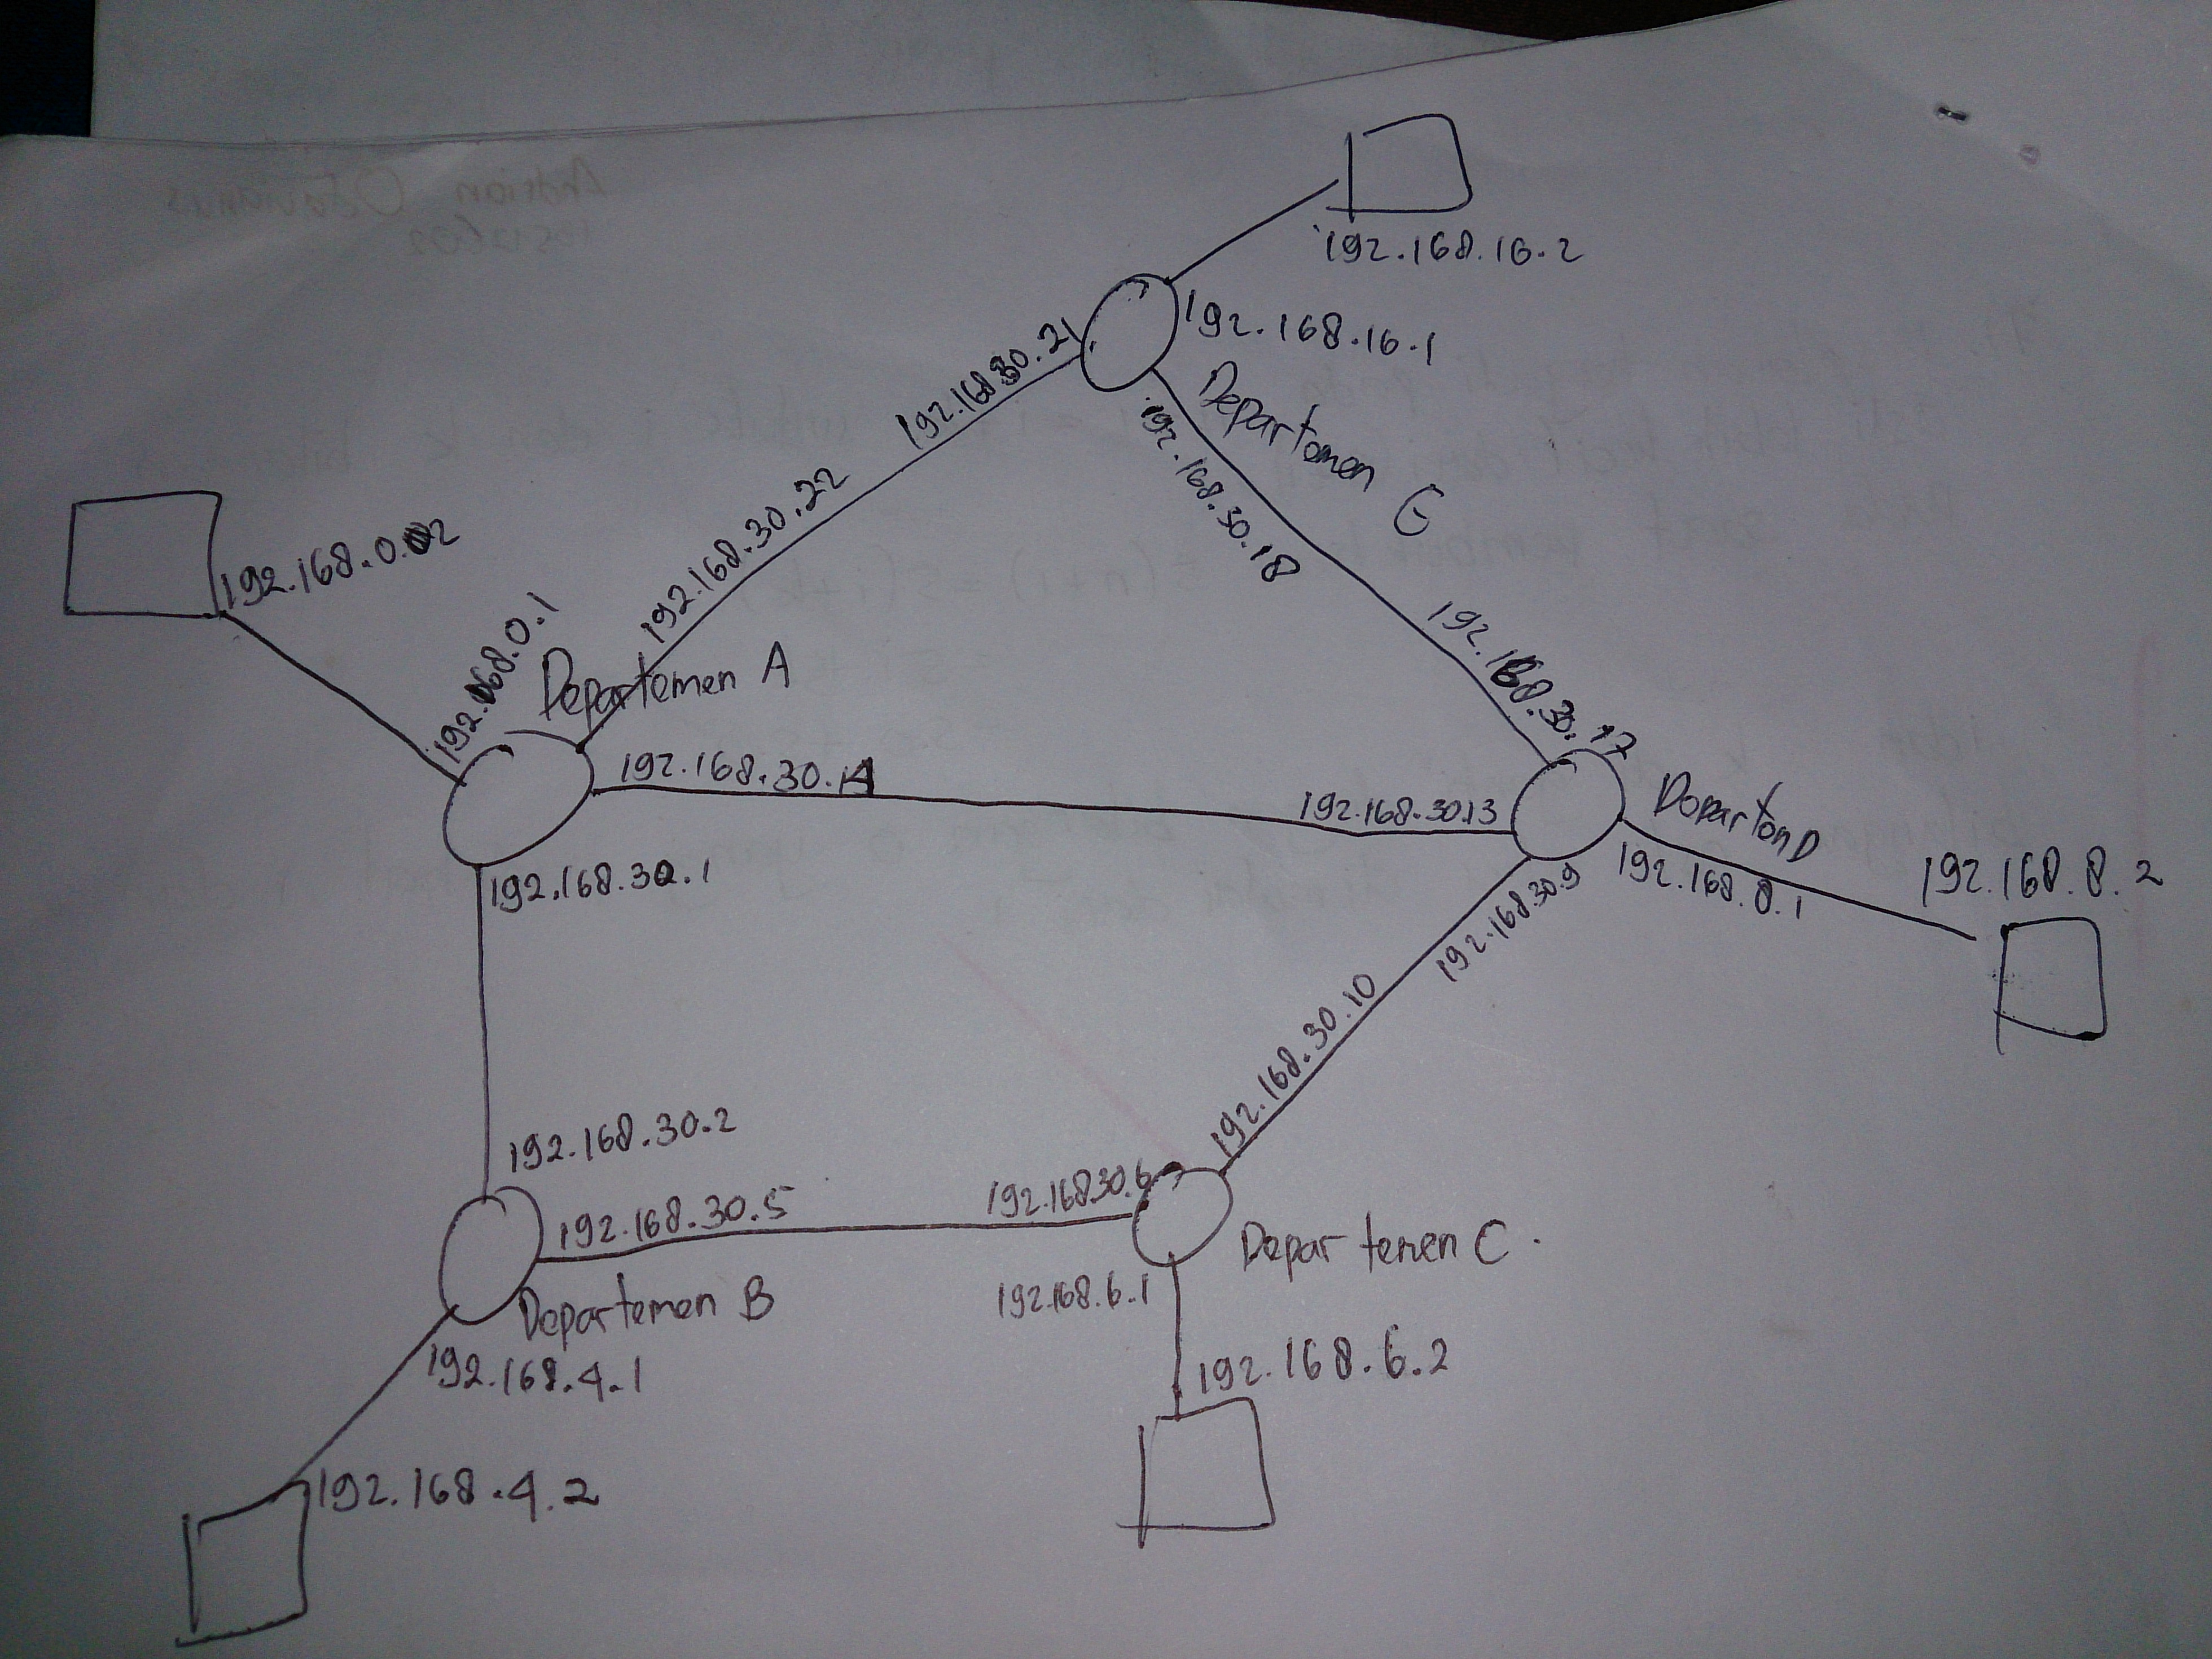 192.168.16.2
192.168.16.1
192.168.30.21
Departemen G
192.168.30.18
192.168.30.22
192.168.0.2
192.168.0.1
Departemen A
192.168.30.17
192.168.30.14
192.168.30.13
Departem D
192.168.8.1
192.168.8.2
192.168.30.1
192.168.30.9
192.168.30.10
192.168.30.2
192.168.30.5
192.16830.6
Departemen B
Departemen C.
192.168.6.1
192.168.4.1
192.168.6.2
192.168.4.2